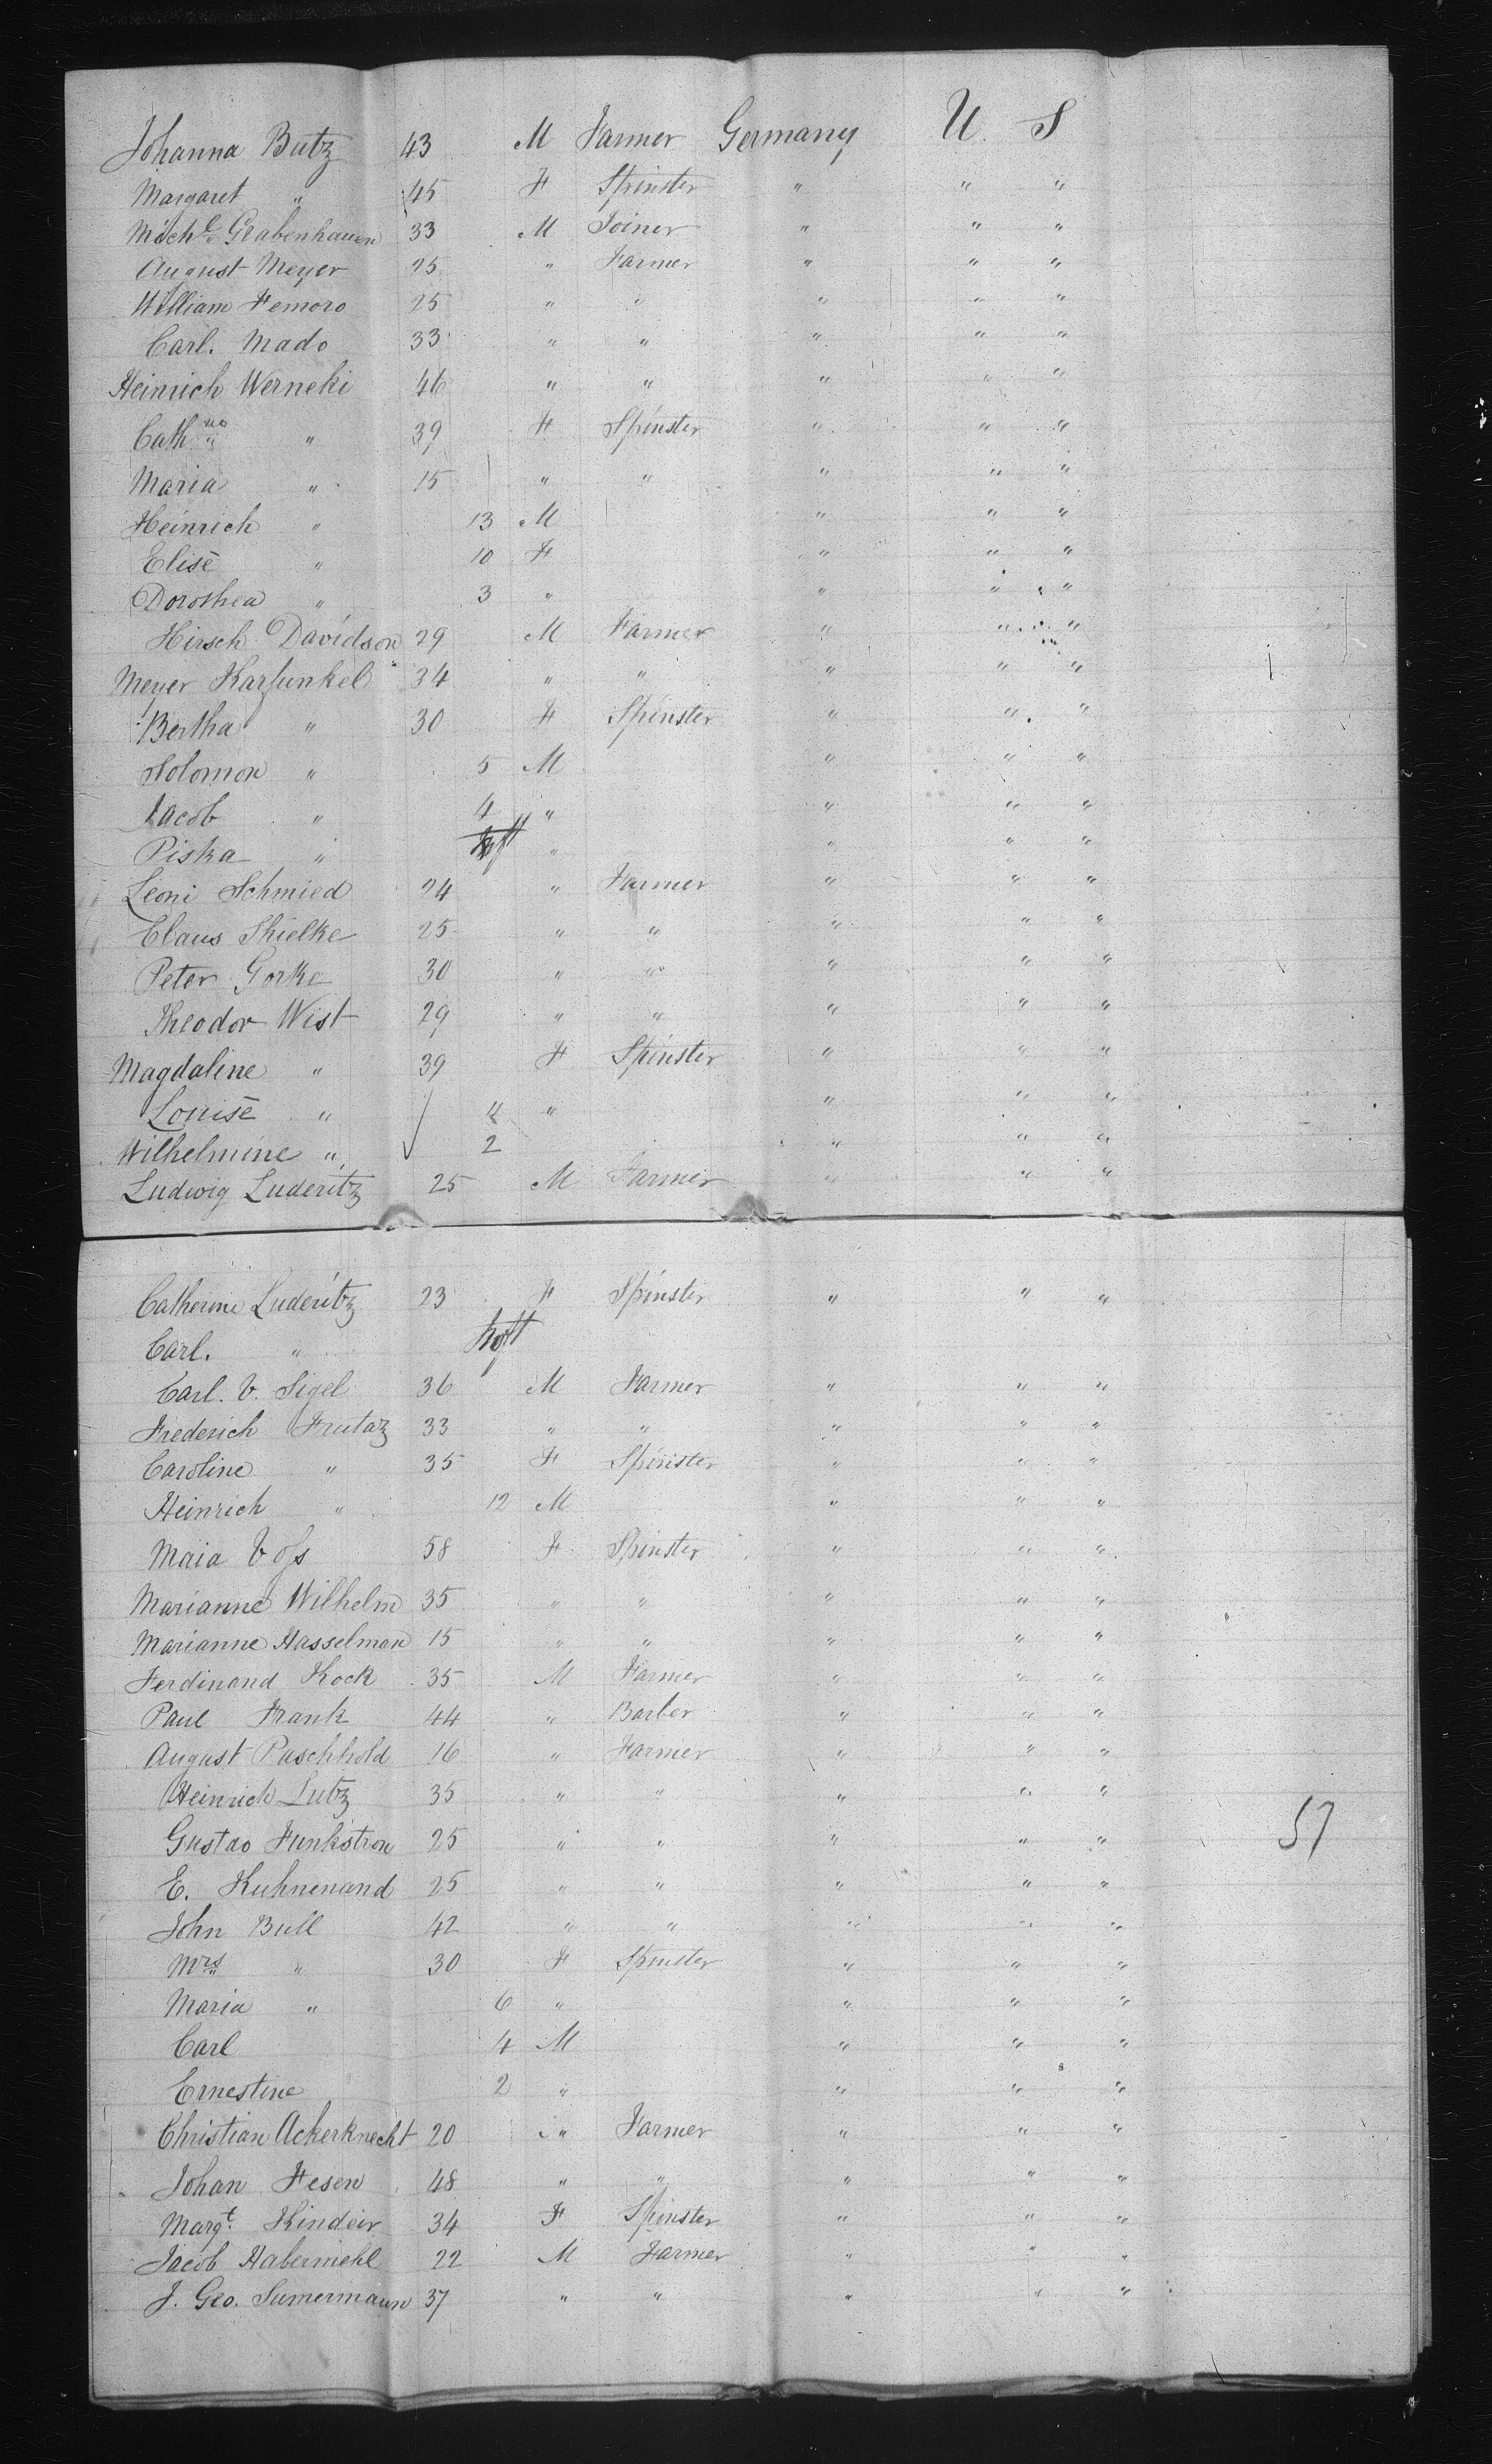 Johanna Butz 43 M Farmer Germany U. S
Margaret " 45 F Spinster " " "
Mich.l Grabenhauen 33 M Joiner " " "
August Meyer 25 " Farmer " " "
William Femoro 25 " " " " "
Carl. Mado 33 " " " " "
Heinrich Werneki 46 " " " " "
Cath.na " 39 F Spinster " " "
Maria " 15 " " " " "
Heinrich " 13 M " " "
Elise " 10 F " " "
Dorothea " 3 " " " "
Hirsch Davidson 29 M Farmer " " "
Meyer Karfunkel 34 " " " " "
Bertha " 30 F Spinster " " "
Solomon " 5 M " " "
Jacob " 4 " " " "
Piska " Inft " " " "
Leoni Schmied 24 " Farmer " " "
Claus Thielke 25 " " " " "
Peter Gorke 30 " " " " "
Theodor Wist 29 " " " " "
Magdaline " 39 F Spinster " " "
Louise " 4 " " " "
Wilhelmine " 2 " " "
Ludwig Luderitz 25 M Farmer " " "
Catherine Luderitz 23 F Spinster " " "
Carl. " Inft
Carl. V. Sigel 36 M Farmer " " "
Frederich Frutaz 33 " " " " "
Caroline " 35 F Spinster " " "
Heinrich " 12 M " " "
Maia Voss 58 F Spinster " " "
Marianne Wilhelm 35 " " " " "
Marianne Hasselman 15 " " " " "
Ferdinand Kock 35 M Farmer " " "
Paul Frank 44 " Barber " " "
August Paschhold 16 " Farmer " " "
Heinrich Lutz 35 " " " " "
Gustav Funkstron 25 " " " " "
57
E. Kuhnenand 25 " " " " "
John Bull 42 " " " " "
Mrs " 30 F Spinster " " "
Maria " 6 " " " "
Carl 4 M " " "
Ernestine 2 " " " "
Christian Ackerknecht 20 " Farmer " " "
Johan Fesen 48 " " " " "
Margt. Kindeir 34 F Spinster " " "
Jacob Habermehl 22 M Farmer " " "
J. Geo. Sumermaun 37 " " " " "